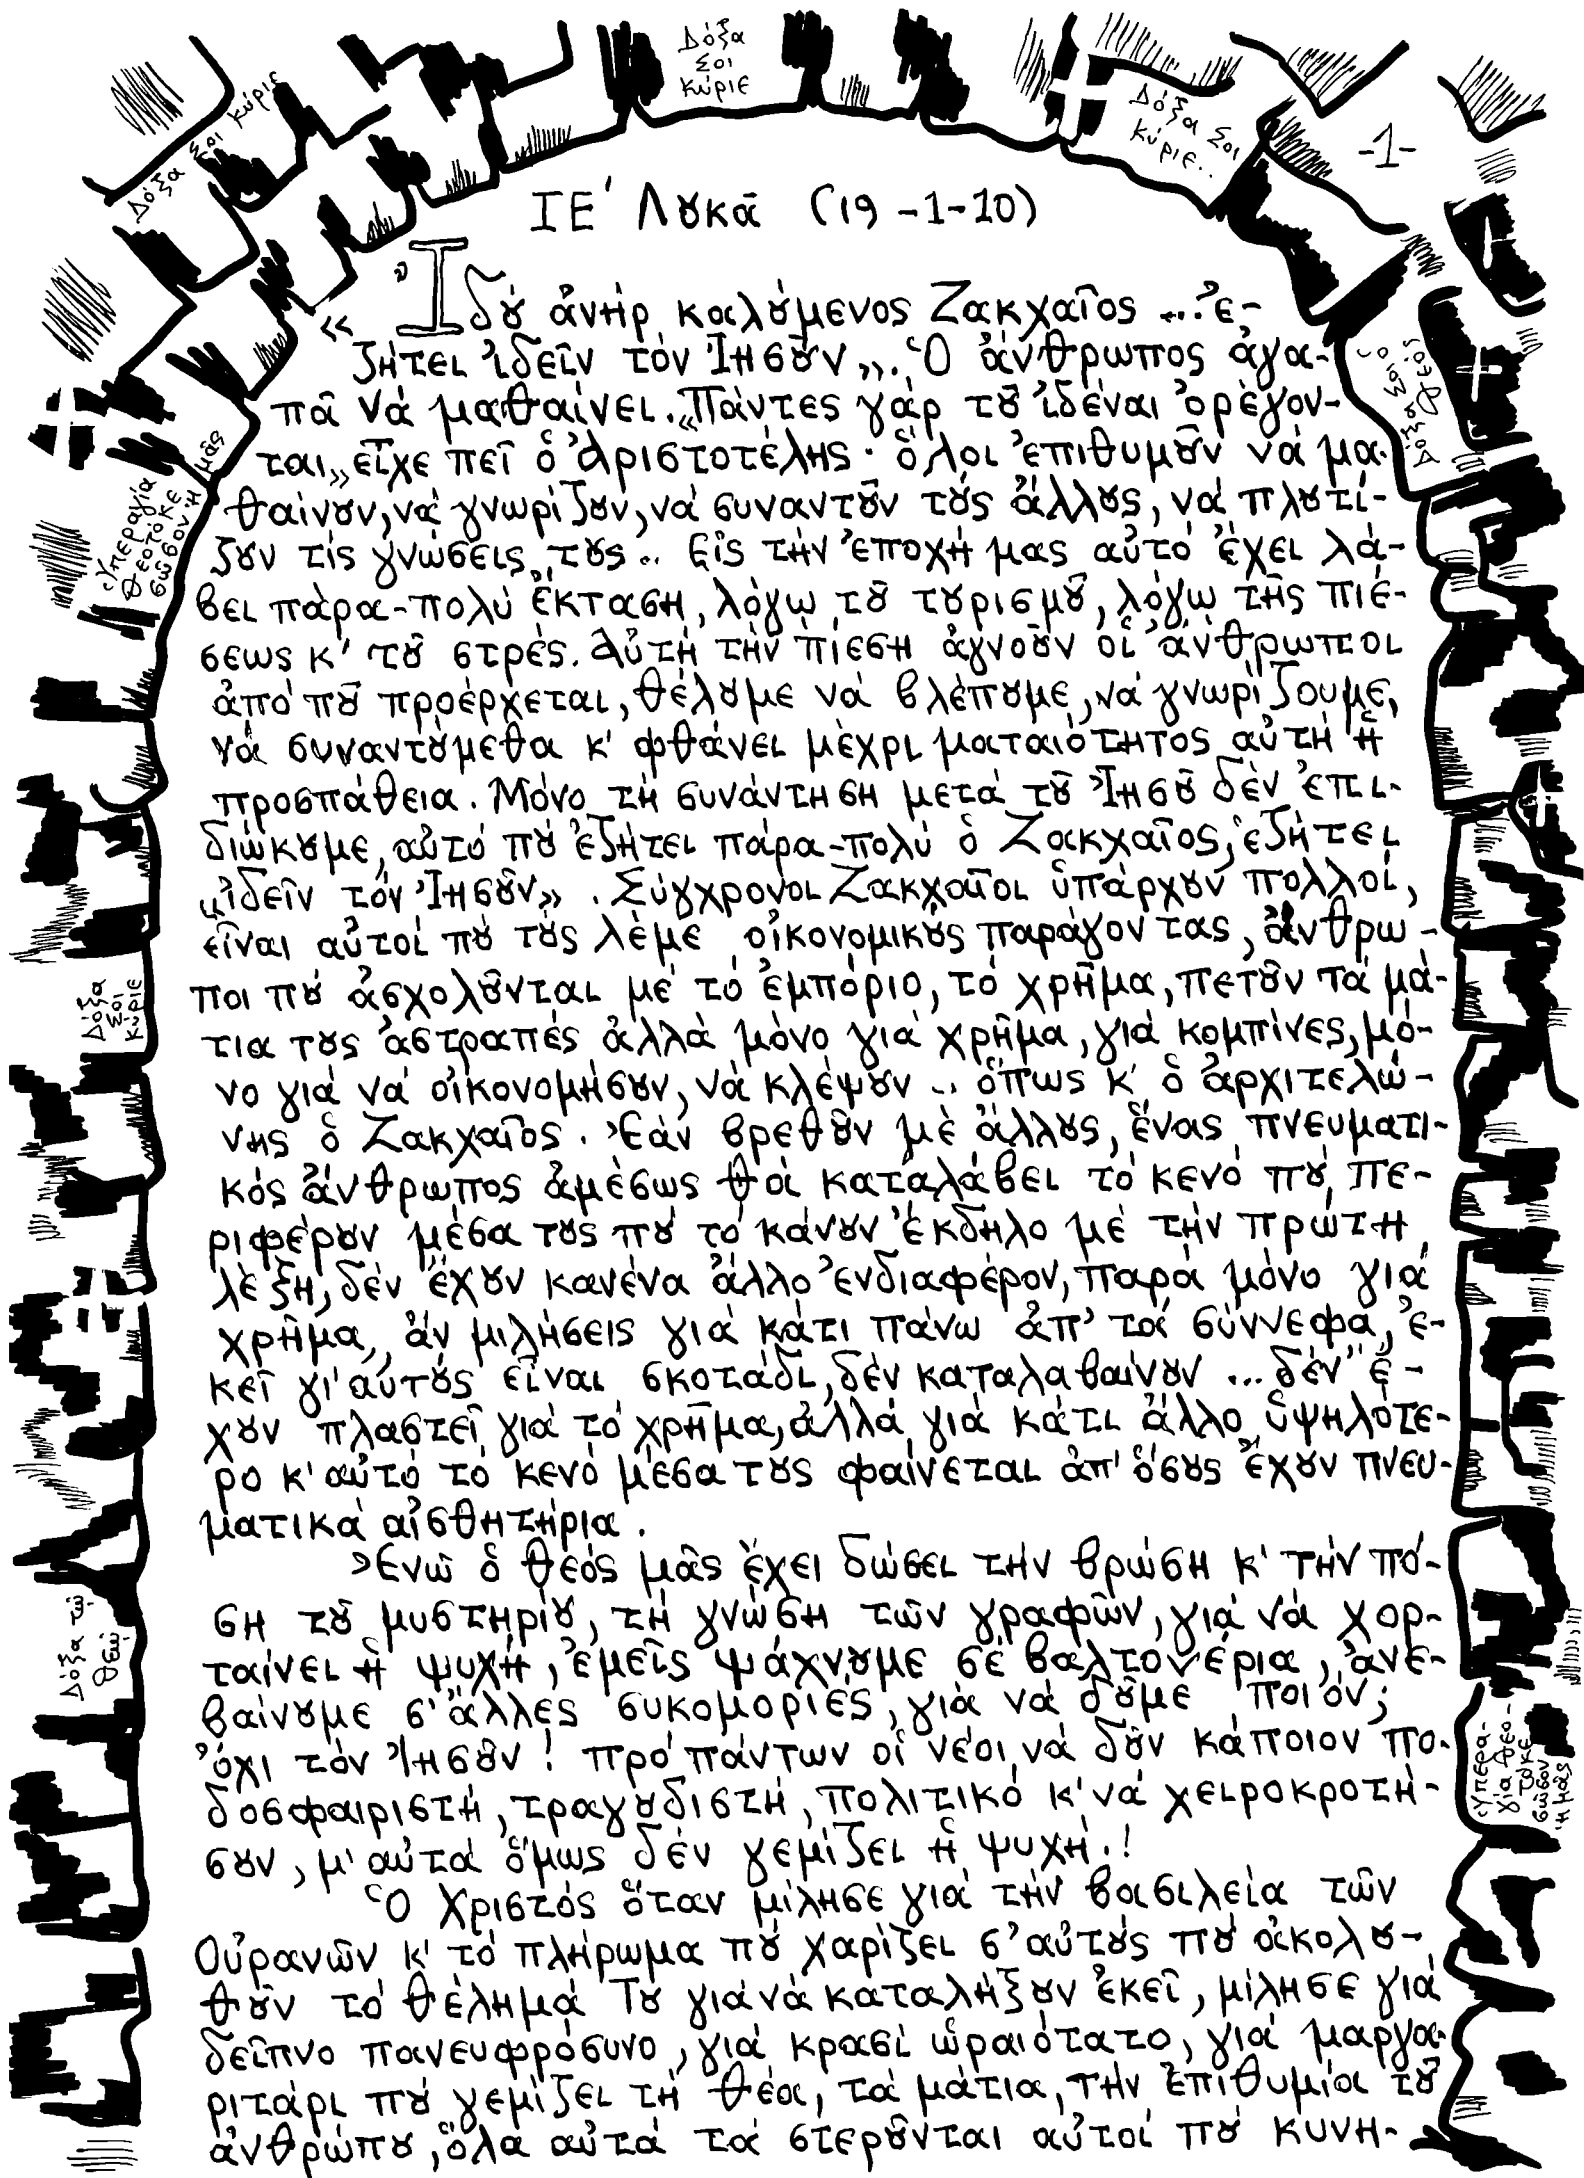 Δόξα
Σοι
Κύριε
Δόξα Σοι Κύριε
Δόξα Σοι
Κύριε..
-1-
ΙΕ΄ Λουκᾶ (19-1-10)
«Ἰδού ἀνήρ καλούμενος Ζακχαῖος ... ἐ-
ζήτει ἰδεῖν τόν Ἰησοῦν». Ὁ ἄνθρωπος ἀγα-
πᾶ νά μαθαίνει. «Πάντες γάρ τοῦ ἰδέναι ὀρέγον-
ται» εἶχε πεῖ ὁ Ἀριστοτέλης· ὅλοι ἐπιθυμοῦν νά μα-
θαίνουν, νά γνωρίζουν, νά συναντοῦν τούς ἄλλους, νά πλουτί-
ζουν τίς γνώσεις τους.. Εἰς τήν ἐποχή μας αὐτό ἔχει λά-
βει πάρα-πολύ ἔκταση, λόγω τοῦ τουρισμοῦ, λόγω τῆς πιέ-
σεως κ' τοῦ στρές. Αὐτή τήν πίεση ἀγνοοῦν οἱ ἄνθρωποι
ἀπό ποῦ προέρχεται, θέλουμε νά βλέπουμε, νά γνωρίζουμε,
νά συναντούμεθα κ' φθάνει μέχρι ματαιότητος αὐτή ἡ
προσπάθεια. Μόνο τή συνάντηση μετά τοῦ Ἰησοῦ δέν ἐπι-
διώκουμε, αὐτό πού ἐζήτει πάρα-πολύ ὁ Ζακχαῖος, ἐζήτει
«ἰδεῖν τόν Ἰησοῦν». Σύγχρονοι Ζακχαῖοι ὑπάρχουν πολλοί,
εἶναι αὐτοί πού τούς λέμε οἰκονομικούς παράγοντας, ἄνθρω-
ποι πού ἀσχολοῦνται μέ τό ἐμπόριο, τό χρῆμα, πετοῦν τά μά-
τια τους ἀστραπές ἀλλά μόνο γιά χρῆμα, γιά κομπίνες, μό-
νο γιά νά οἰκονομήσουν, νά κλέψουν .. ὅπως κ' ὁ ἀρχιτελώ-
νης ὁ Ζακχαῖος. Ἐάν βρεθοῦν μέ ἄλλους, ἕνας πνευματι-
κός ἄνθρωπος ἀμέσως θά καταλάβει τό κενό πού πε-
ριφέρουν μέσα τους πού τό κάνουν ἔκδηλο μέ τήν πρώτη
λέξη, δέν ἔχουν κανένα ἄλλο ἐνδιαφέρον, παρά μόνο γιά
χρῆμα, ἄν μιλήσεις γιά κάτι πάνω ἀπ' τά σύννεφα, ἐ-
κεῖ γι' αὐτούς εἶναι σκοτάδι, δέν καταλαβαίνουν ... δέν ἔ-
χουν πλαστεῖ γιά τό χρῆμα, ἀλλά γιά κάτι ἄλλο ὑψηλότε-
ρο κ' αὐτό τό κενό μέσα τους φαίνεται ἀπ' ὅσους ἔχουν πνευ-
ματικά αἰσθητήρια.
Ἐνῶ ὁ Θεός μᾶς ἔχει δώσει τήν βρώση κ' τήν πό-
ση τοῦ μυστηρίου, τή γνώση τῶν γραφῶν, γιά νά χορ-
ταίνει ἡ ψυχή, ἐμεῖς ψάχνουμε σέ βαλτονέρια, ἀνε-
βαίνουμε σ' ἄλλες συκομοριές, γιά νά δοῦμε ποιόν;
ὄχι τόν Ἰησοῦν! πρό πάντων οἱ νέοι νά δοῦν κάποιον πο-
δοσφαιριστή, τραγουδιστή, πολιτικό κ' νά χειροκροτή-
σουν, μ' αὐτά ὅμως δέν γεμίζει ἡ ψυχή.!
Ὁ Χριστός ὅταν μίλησε γιά τήν βασιλεία τῶν
Οὐρανῶν κ' τό πλήρωμα πού χαρίζει σ' αὐτούς πού ἀκολου-
θοῦν τό θέλημά Του γιά νά καταλήξουν ἐκεῖ, μίλησε γιά
δεῖπνο πανευφρόσυνο, γιά κρασί ὡραιότατο, γιά μαργα-
ριτάρι πού γεμίζει τή θέα, τά μάτια, τήν ἐπιθυμία τοῦ
ἀνθρώπου, ὅλα αὐτά τά στεροῦνται αὐτοί πού κυνη-
Δόξα Σοι
ὁ Θεός
Ὑπεραγία
Θεοτόκε
σῶσον ἡμᾶς
Δόξα
Σοι
Κύριε
Δόξα τῷ
Θεῷ
Ὑπερα-
γία Θεο-
τόκε
σῶσον
ἡμᾶς